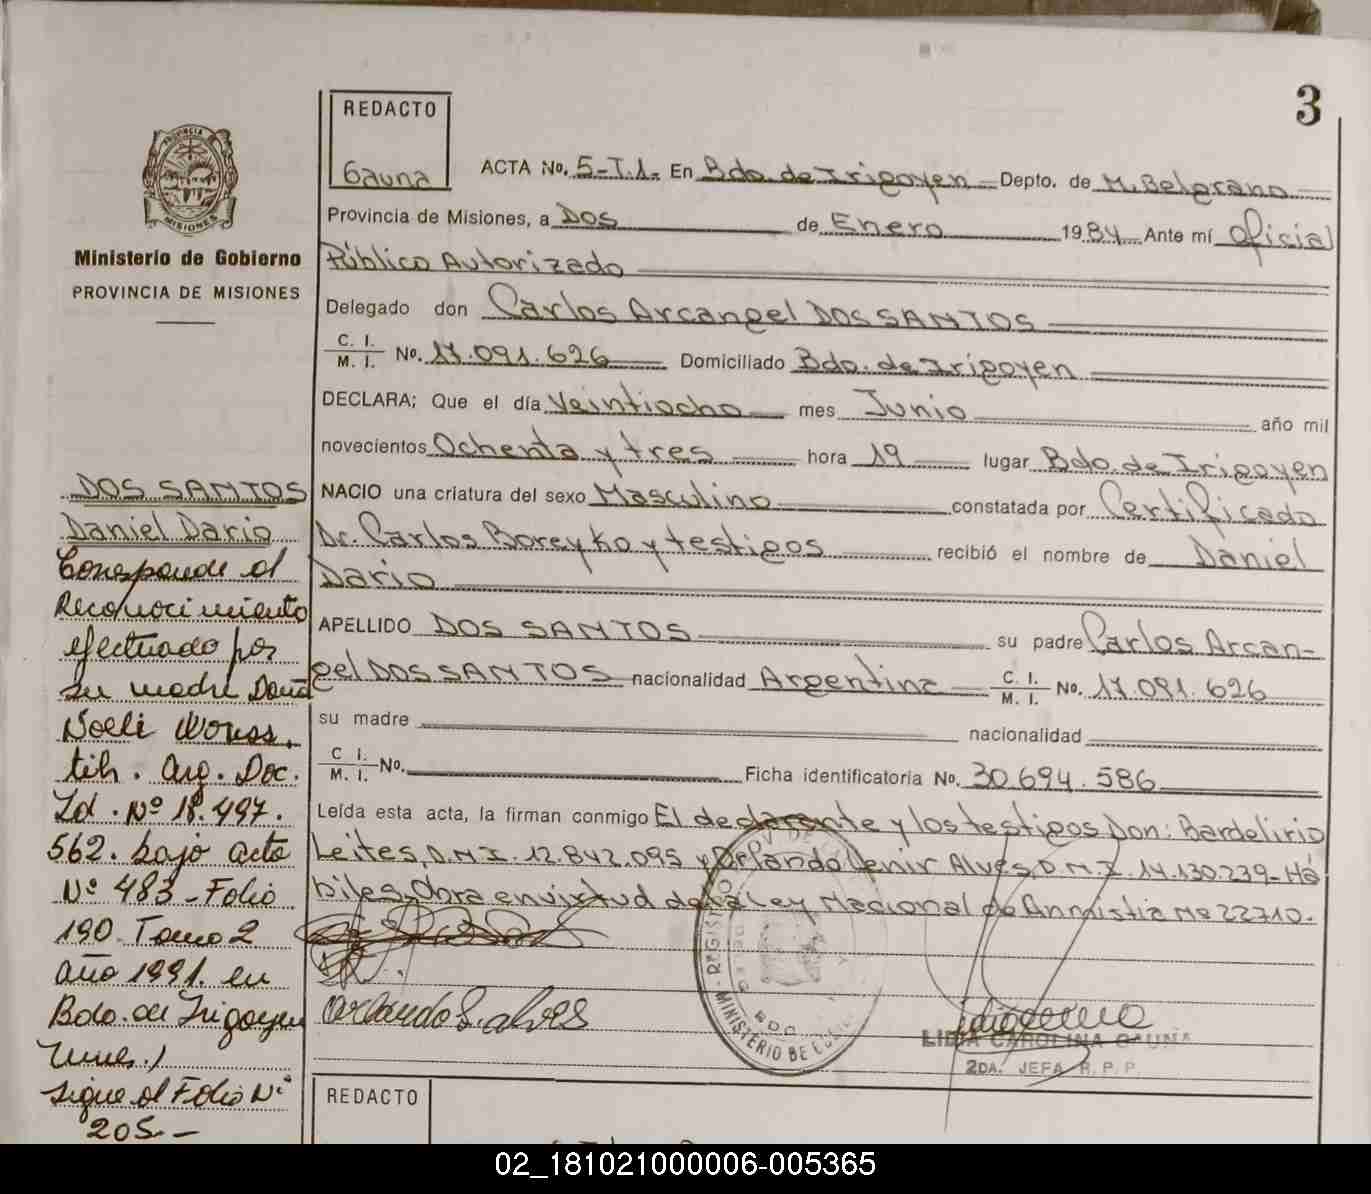 3
REDACTO
Gauna
ACTA No. 5-T.1. En Bdo. de Irigoyen Depto. de M. Belgrano
Provincia de Misiones, a Dos de Enero 1984 Ante mí Oficial
Público Autorizado
Delegado don Carlos Arcangel DOS SANTOS
C. I.
M. I. No. 17.091.626 Domiciliado Bdo. de Irigoyen
DECLARA; Que el día Veintiocho mes Junio año mil
novecientos Ochenta y tres hora 19 lugar Bdo. de Irigoyen
NACIO una criatura del sexo Masculino constatada por Certificado
Dr. Carlos Boreyko y testigos recibió el nombre de Daniel
Dario
APELLIDO DOS SANTOS su padre Carlos Arcan-
gel DOS SANTOS nacionalidad Argentina C. I. M. I. No. 17.091.626
su madre nacionalidad
C I. M. I. No. Ficha identificatoria No. 30.694.586
Leída esta acta, la firman conmigo El declarante y los testigos Don: Bardelirio
Leites, D.M.I. 12.842.095 y Orlando Venir Alves D.M.I. 14.130.239- Há
biles, Obra en virtud de la Ley Nacional de Anmistia No 22710.
Orlando S. Alves
LIDIA CAROLINA GAUNA
2DA. JEFA R. P. P.
MINISTERIO DE
REGISTRO
BDO
PROVINCIA
MISIONES
Ministerio de Gobierno
PROVINCIA DE MISIONES
DOS SANTOS
Daniel Dario
Corresponde al
Reconocimiento
efectuado por
su madre Doña
Noeli
tih. Arg. Doc.
Id. Nº 18.497.
562. bajo acta
Nº 483 - Folio
190 Tomo 2
año 1991. en
Bdo. de Irigoyen
Mnes.)
sigue al Folio Nº
205.-
REDACTO
02_181021000006-005365